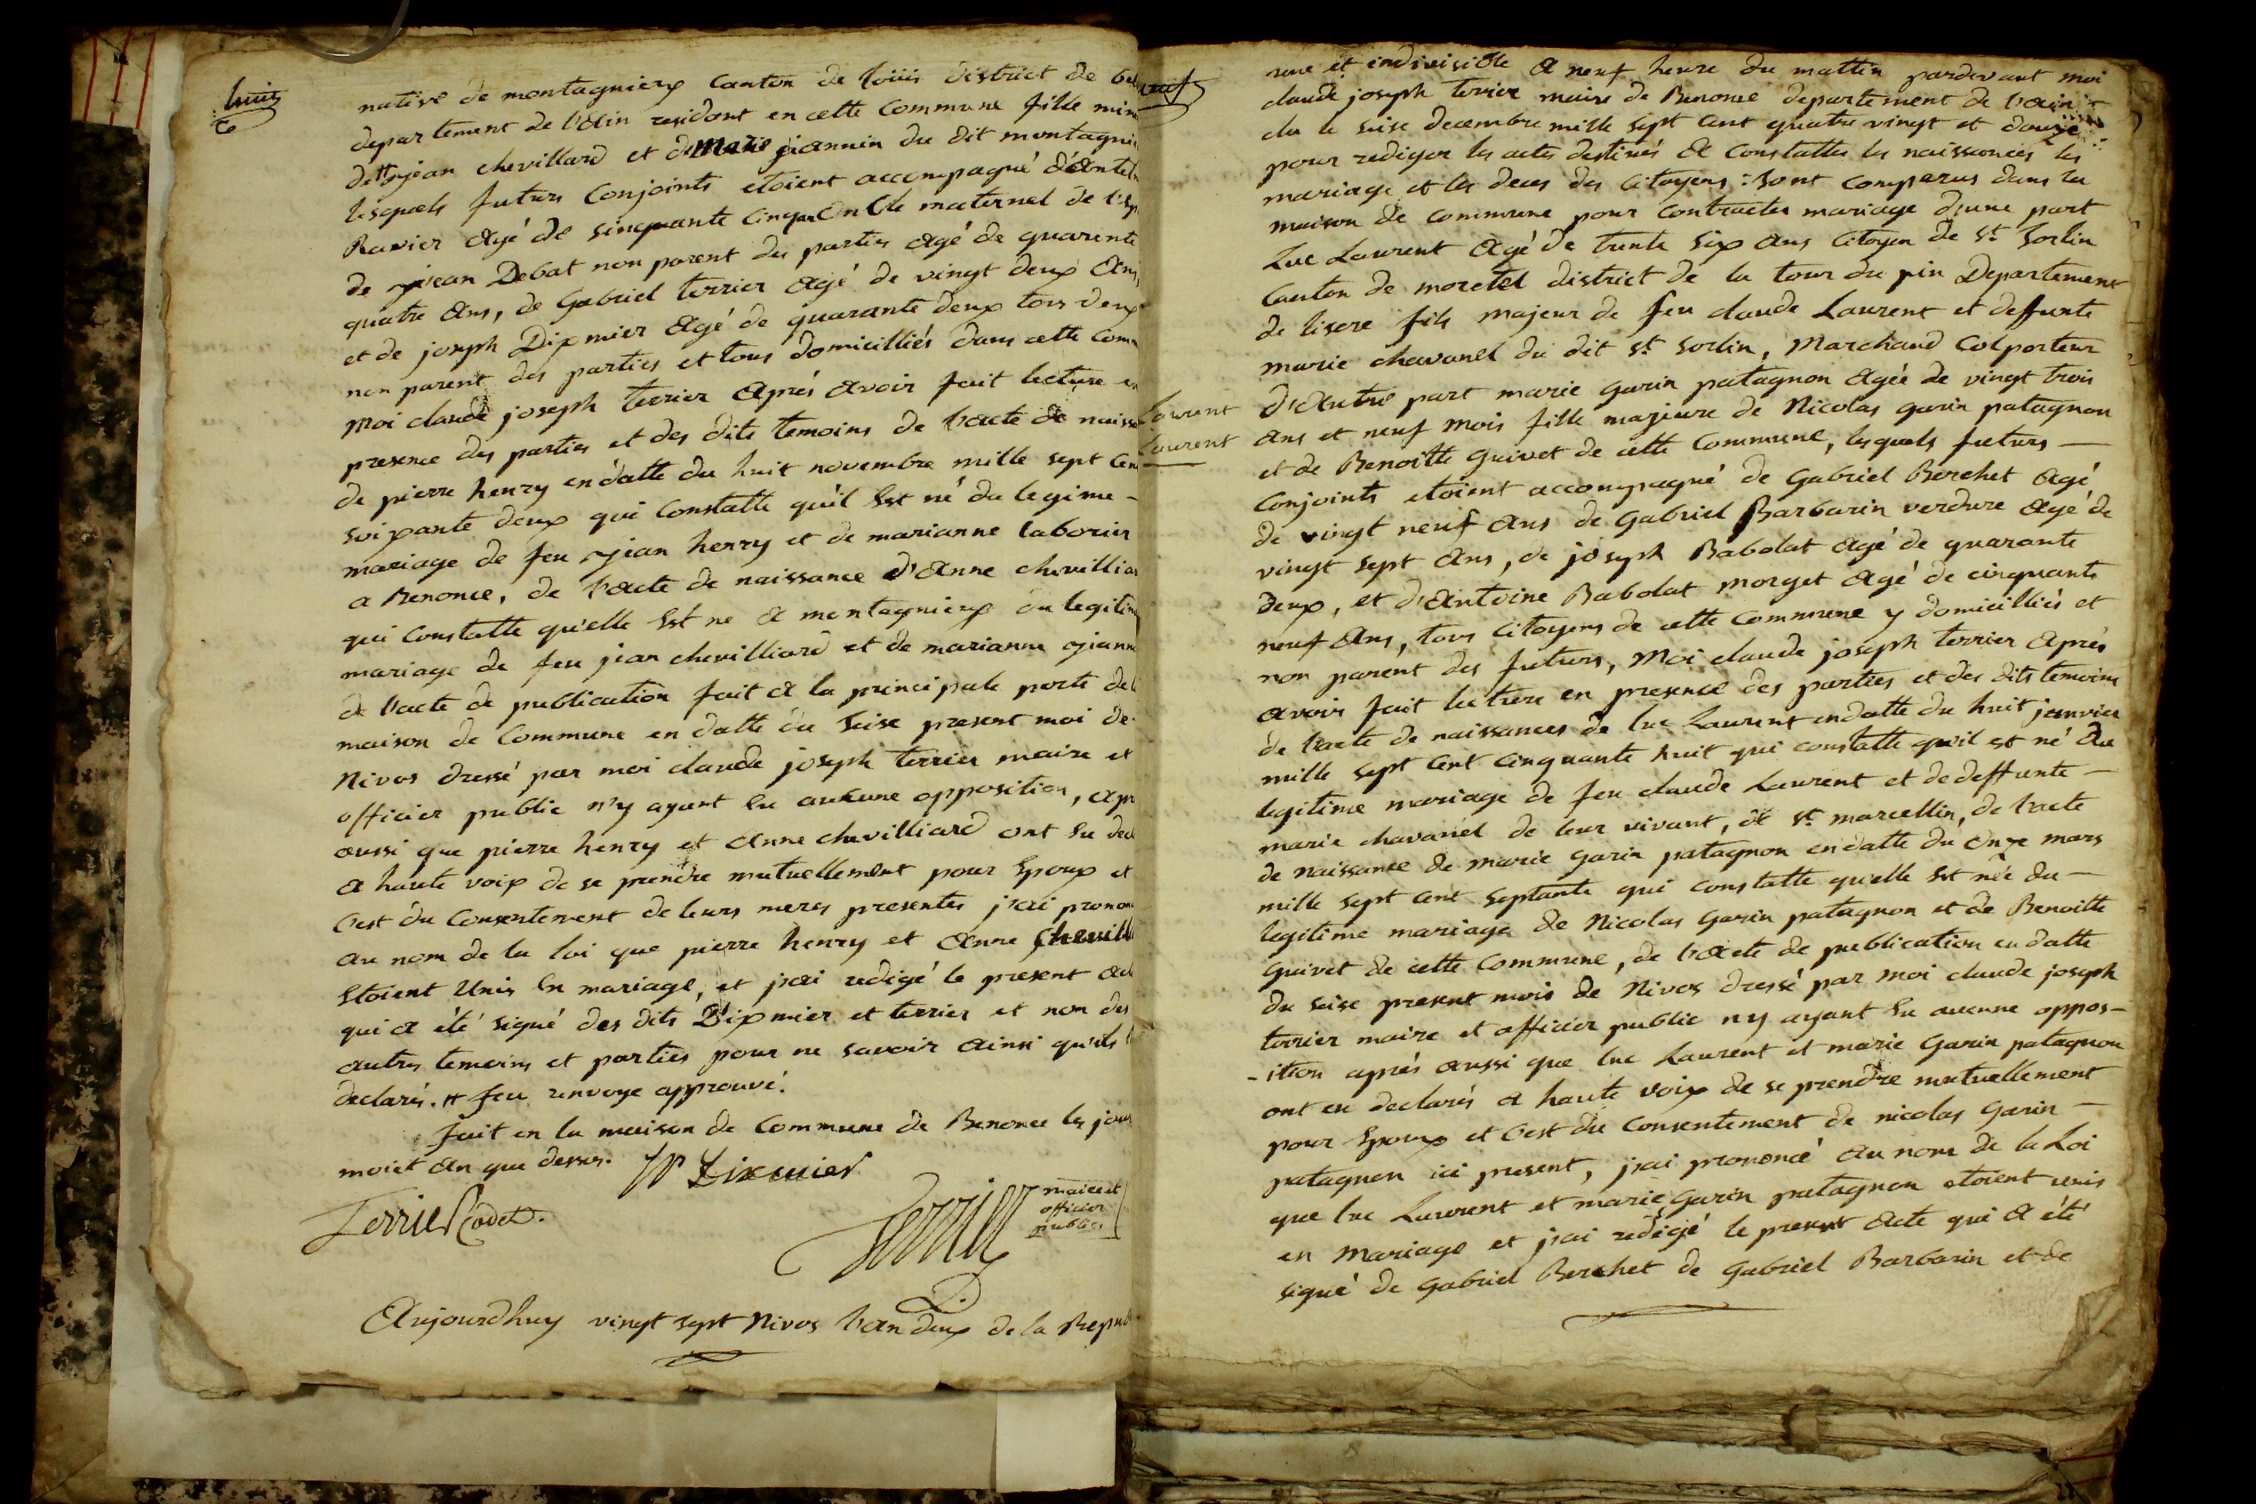 huit
native de montagnieux Canton de loüis district de
departement de l'Ain residant en cette Commune fille
de ++ jean chevillard et de Marie jeannin du dit montagnieu
lesquels futurs Conjoints etoient accompagné
Ravier agé de cinquante cinq oncle maternel de
de jean Debat non parent des parties agé de quarente
quatre ans, de Gabriel terrier agé de vingt deux ans,
et de joseph Dixmier agé de quarante deux tous deux
non parent des parties et tous domicilliés dans cette Com
moi claude joseph terrier Après avoir fait lecture en
presence des parties et des dits temoins de l'acte de naiss
de pierre henry en datte du huit novembre mille sept cen
soixante deux qui Constatte qu'il Est né du legime -
mariage de feu jean henry et de marianne laborier
a Benonce, de l'acte de naissance d'Anne chevilliar
qui Constatte qu'elle Est ne a montagnieux du legitim
mariage de feu jean chevilliard et de marianne jeann
de l'acte de publication fait a la principale porte de
maison de Commune en datte du seise present moi de
Nivos dressé par moi claude joseph terrier maire et
officier public n'y ayant Eu aucune opposition, apr
aussi que pierre henry et Anne chevilliard ont Eu decl
a haute voix de se prendre mutuellement pour Epoux et
c'est du Consentement de leurs meres presentes j'ai pronon
au nom de la loi que pierre henry et Anne Chevill
Etoient Unis En mariage, et j'ai redigé le present act
qui a été signé des dits Dixmier et terrier et non des
autres temoins et parties pour ne savoir ainsi qu'ils
declarés. ++ feu renvoye approuvé.
fait en la maison de Commune de Benonce les jour
mois et an que dessus. JP Dixmier
Terrier Cadet.
Terrier maire et
officier
public
Aujourdhuy vingt sept Nivos l'an deux de la Repub
neuf
une et indivisible a neuf heure du mattin pardevant moi
claude joseph terrier maire de Benonce departement de l'ain
elu le seise decembre mille sept cent quatre vingt et douze
pour rediger les actes destinés a Constatter les naissances les
mariage et les deces des Citoyens : sont comparus dans la
maison de Commune pour Contracter mariage d'une part
Luc Laurent agé de trente six ans Citoyen de St Sorlin
Canton de moretel district de la tour du pin Departement
de lisere fils majeur de feu claude Laurent et deffunte
marie chavanel du dit St Sorlin, Marchand Colporteur
Laurent
Laurent
d'Autre part marie Garin patagnon Agée de vingt trois
ans et neuf mois fille majeure de Nicolas garin patagnon
et de Benoitte Guivet de cette Commune, lesquels futurs -
Conjoints etoient accompagné de Gabriel Berchet agé
de vingt neuf ans de Gabriel Barbarin verdure agé de
vingt sept ans, de joseph Babolat agé de quarante
deux, et d'Antoine Babolat morget agé de cinquante
neuf ans, tous Citoyens de cette Commune y domicilliés et
non parent des futurs, Moi claude joseph terrier Après
avoir fait lecture en presence des parties et des dits temoins
de l'acte de naissances de luc Laurent en datte du huit janvier
mille sept cent cinquante huit qui constatte qu'il est né du
legitime mariage de feu claude Laurent et de deffunte -
marie chavanel de leur vivant, a St marcellin, de l'acte
de naissance de marie Garin patagnon en datte du onze mars
mille sept cent septante qui constatte qu'elle Est née du -
legitime mariage de Nicolas Garin patagnon et de Benoitte
Guivet de cette Commune, de l'acte de publication en datte
du seise present mois de Nivos dressé par moi claude joseph
terrier maire et officier public n'y ayant Eu aucune oppos-
-ition après aussi que luc Laurent et marie Garin patagnon
ont eu declarés a haute voix de se prendre mutuellement
pour Epoux et c'est du Consentement de nicolas Garin -
patagnon ici present, j'ai prononcé au nom de la Loi
que luc Laurent et marie Garin patagnon etoient unis
en Mariage et j'ai redigé le present acte qui a été
signé de Gabriel Berchet de Gabriel Barbarin et de